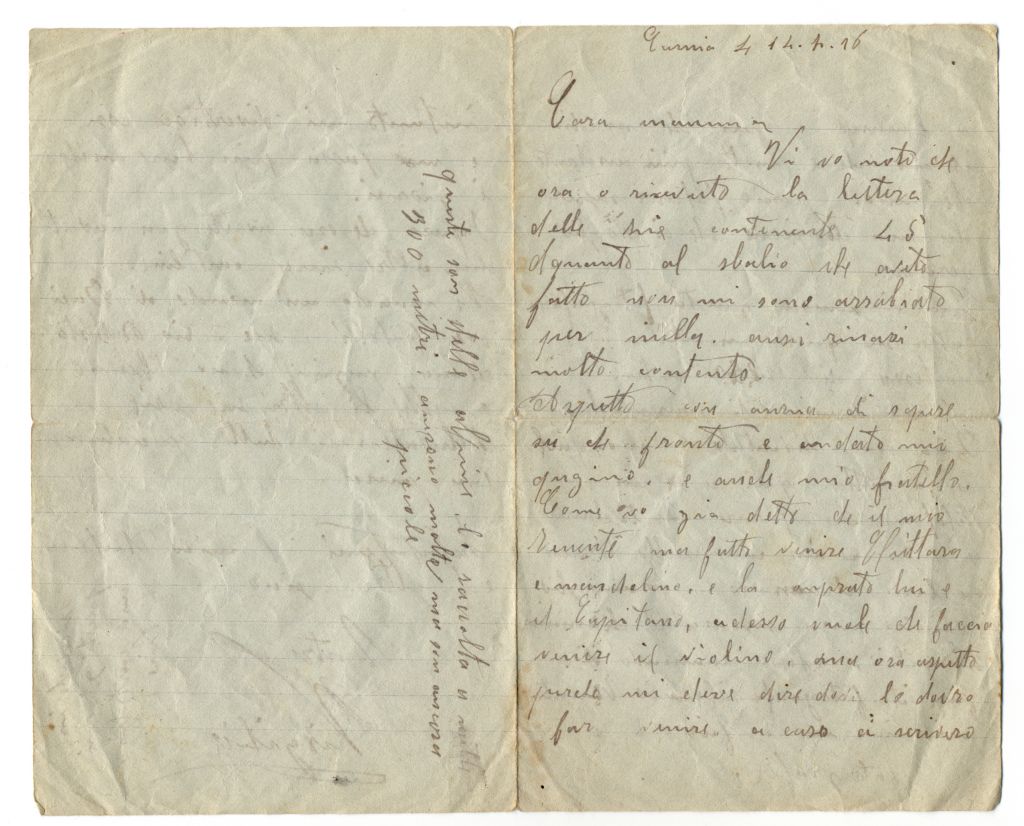 14.4.16
Cara mamma
Vi vo noto che
ora o ricevuto la lettera
delle sire contenente £ 5
dquanto al sbalio che avito
fatto non mi sono arrabiato
per nulla. ansi rimasi
molto contento.
Aspetto con ansia di sapere
su che fronto e andato mio
qugino. e anche mio fratello.
Come vo gia detto che il mio
tenente ma fatto venire Ghittara
e mandolino. e la conprato lui e
il Capitano, adesso vuole che faccia
venire il violino. ma ora aspetto
perche mi deve dire dove lo dovro
far venire a caso vi scrivero
queste son stelle alpine. lo raccolta a mille
300 metri. ancono molte ma son ancora
piccole